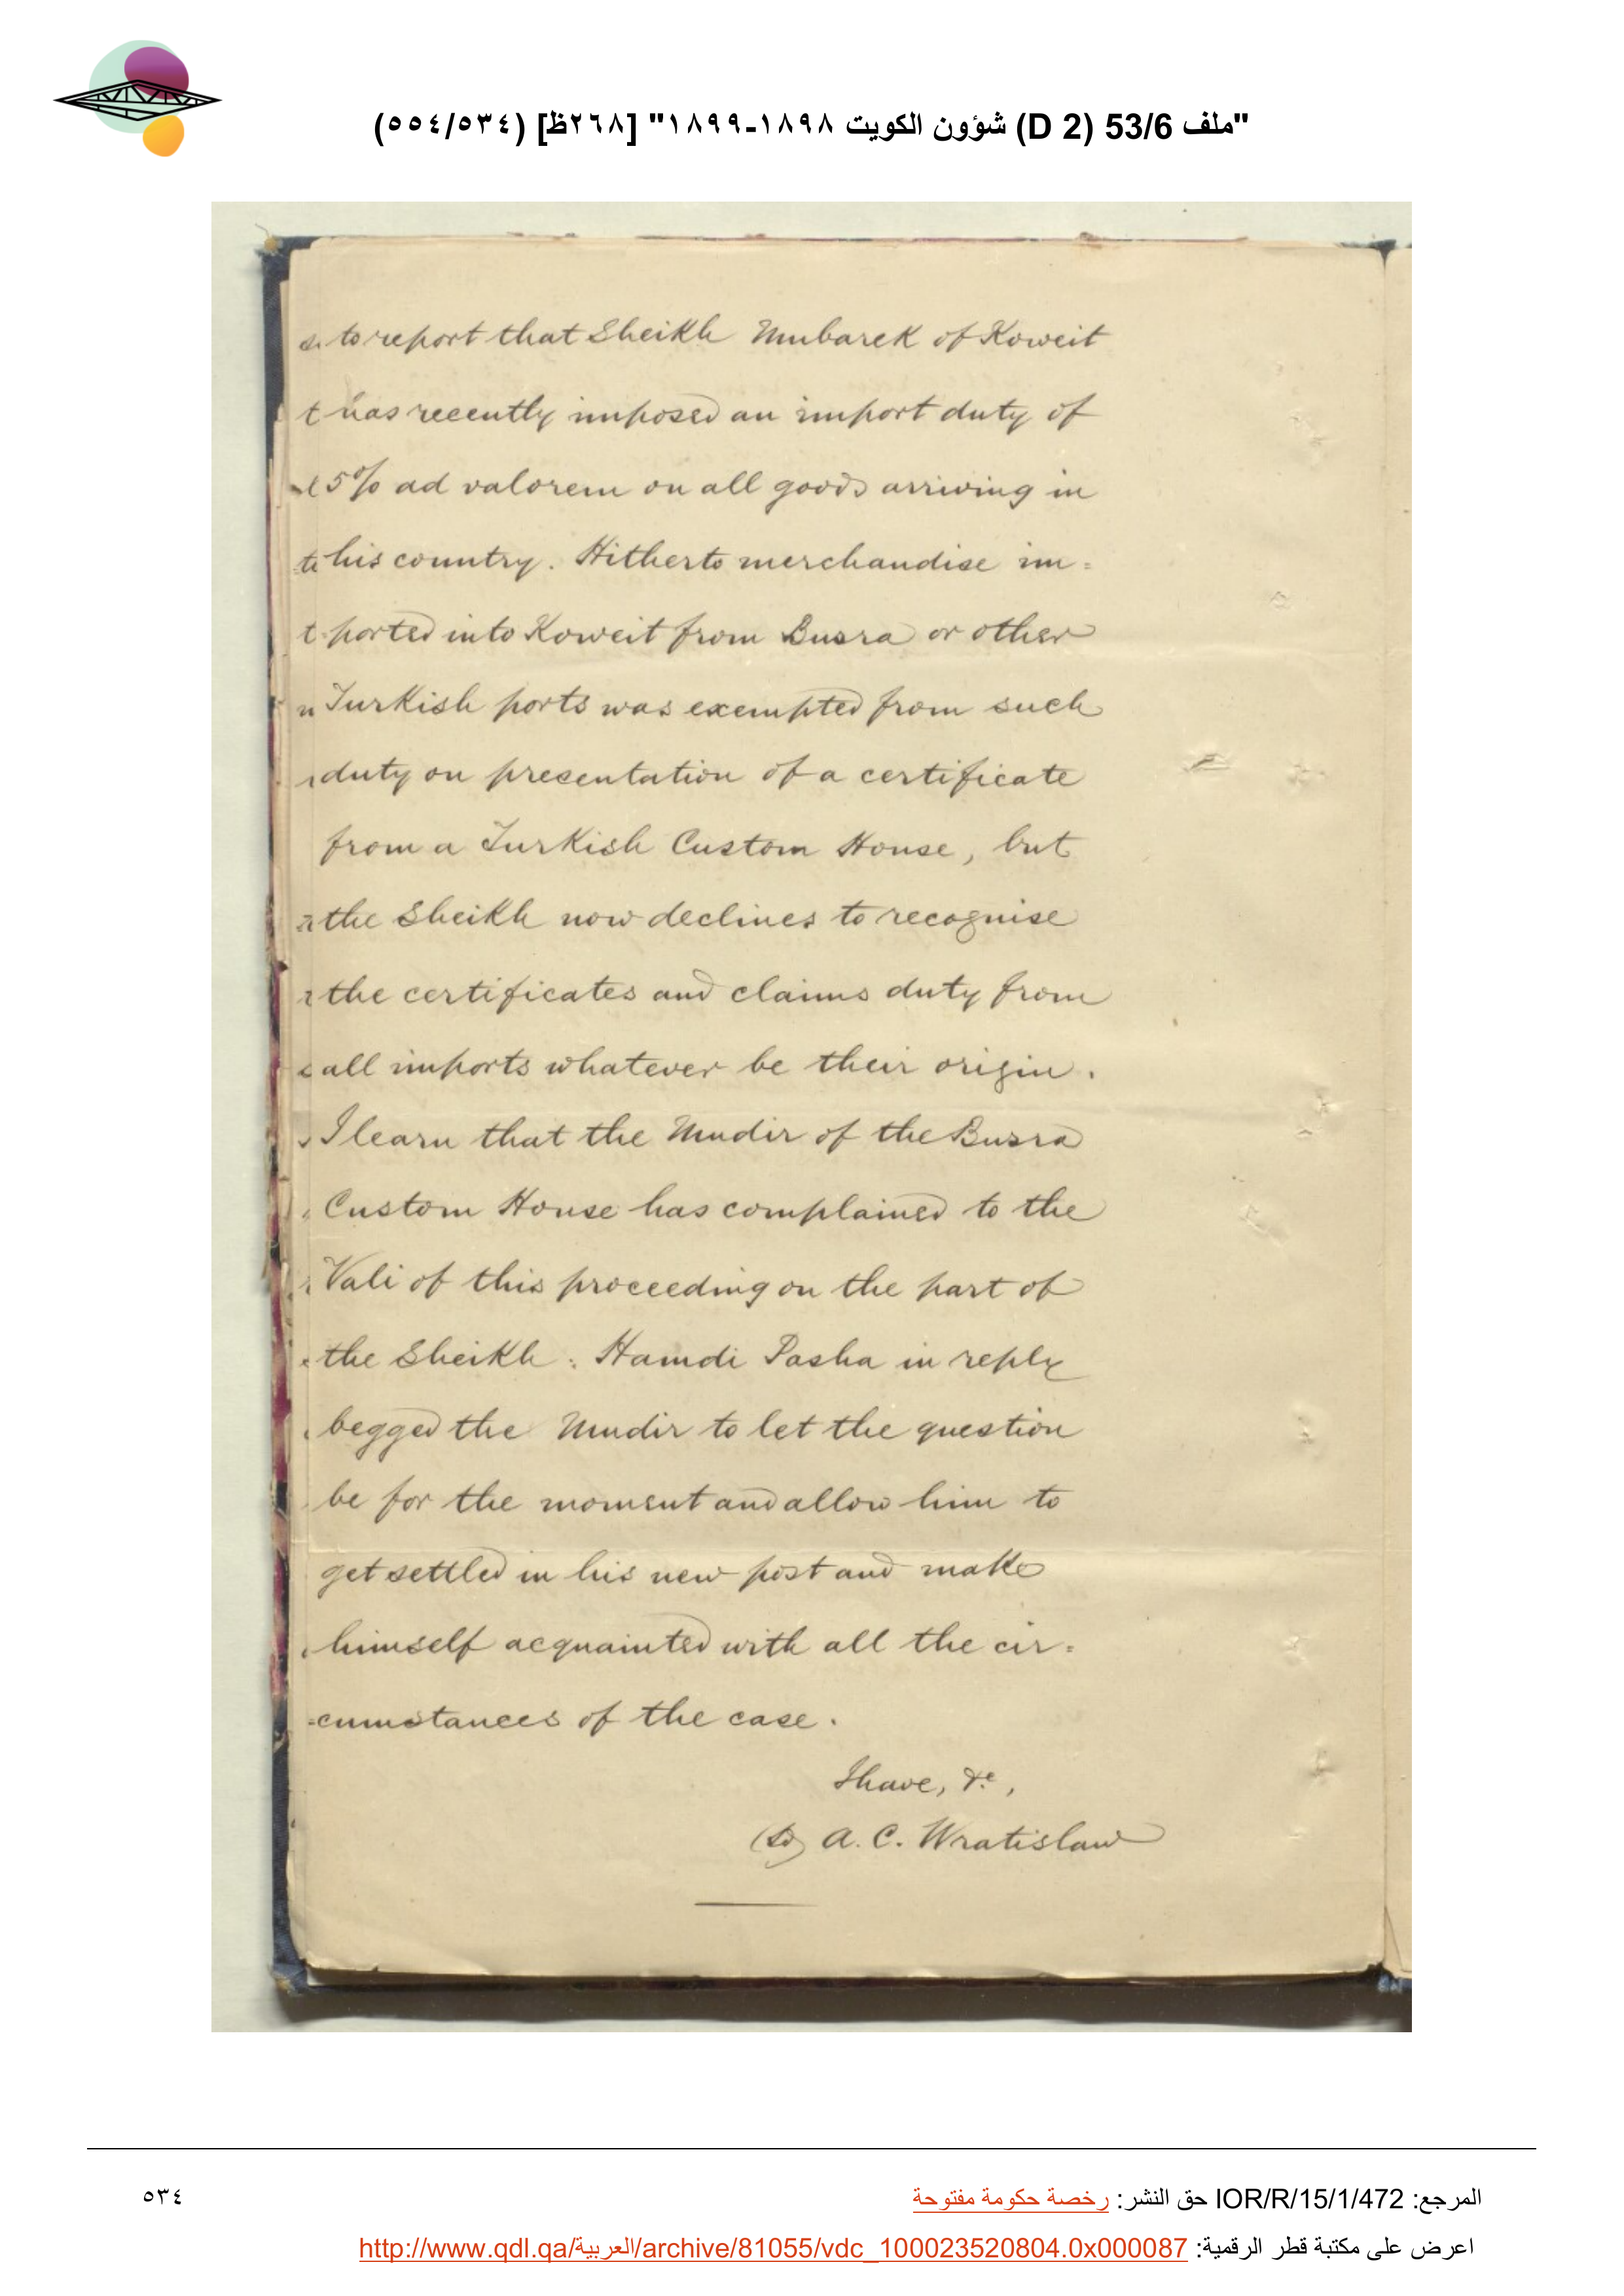 "ملف 53/6 (D 2) شؤون الكويت ١٨٩٨-١٨٩٩" [٢٦٨ظ] (٥٣٤/٥٥٤)
to report that Sheikh Mubarek of Koweit
has recently imposed an import duty of
5% ad valorem on all goods arriving in
his country. Hitherto merchandise im=
ported into Koweit from Busra or other
Turkish ports was exempted from such
duty on presentation of a certificate
from a Turkish Custom House, but
the Sheikh now declines to recognise
the certificates and claims duty from
all imports whatever be their origin.
I learn that the Mudir of the Busra
Custom House has complained to the
Vali of this proceeding on the part of
the Sheikh: Hamdi Pasha in reply
begged the Mudir to let the question
be for the moment and allow him to
get settled in his new post and make
himself acquainted with all the cir=
=cumstances of the case.
I have, &c,
(Sd) A. C. Wratislaw
المرجع: IOR/R/15/1/472 حق النشر: رخصة حكومة مفتوحة
٥٣٤
اعرض على مكتبة قطر الرقمية: http://www.qdl.qa/العربية/archive/81055/vdc_100023520804.0x000087